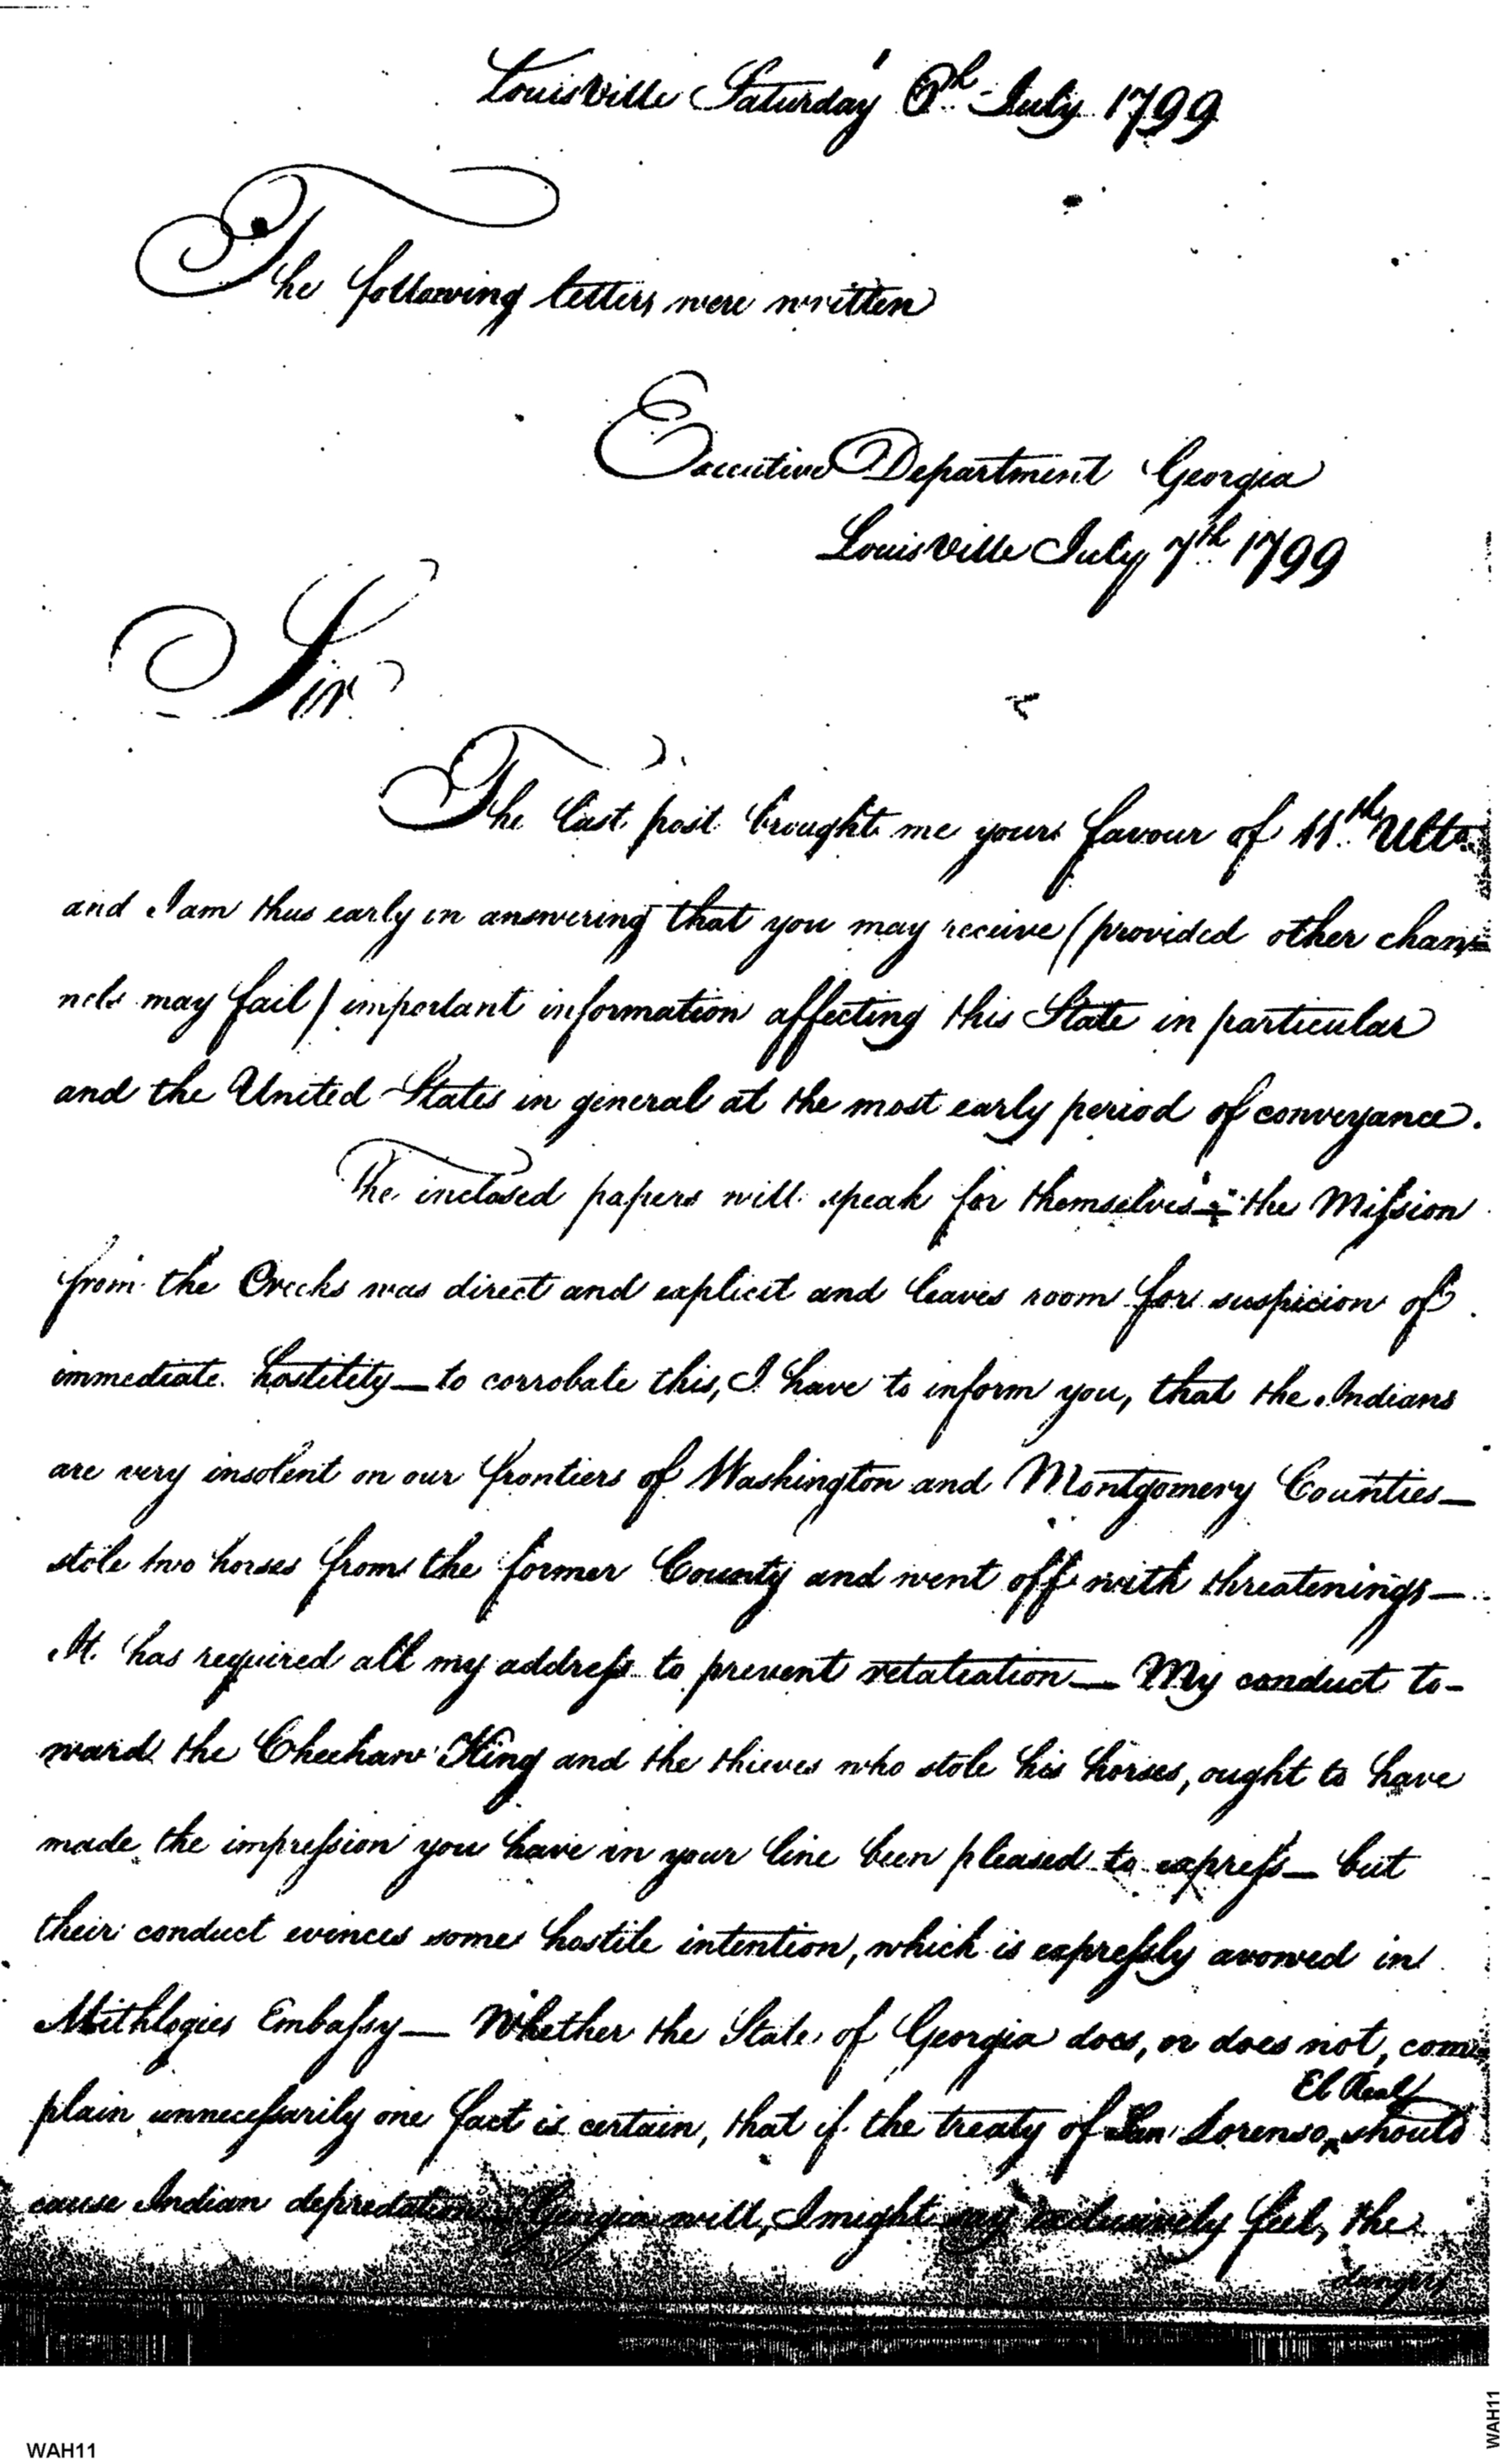 Louisville Saturday 6th July 1799
The following letters were written
Executive Department Georgia
Louisville July 7th 1799
Sir
The last post brought me your favour of 11th Ulto.
and I am thus early in answering that you may receive (provided other chan-
nels may fail) important information affecting this State in particular
and the United States in general at the most early period of conveyance.
The inclosed papers will speak for themselves the Mission
from the Creeks was direct and explicit and leaves room for suspicion of
immediate hostility — to corrobate this, I have to inform you, that the Indians
are very insolent on our frontiers of Washington and Montgomery Counties —
stole two horses from the former County and went off with threatenings —
It has required all my address to prevent retaliation — My conduct to-
ward the Cheehaw King and the thieves who stole his horses, ought to have
made the impression you have in your line been pleased to express — but
their conduct evinces some hostile intention, which is expressly avowed in
Mithlogies Embassy — Whether the State of Georgia does, or does not, com-
El Real
plain unnecessarily one fact is certain, that if the treaty of San Lorenso, should
cause Indian depredations Georgia will, I might say exclusively feel, the
dangers
WAH11
WAH11